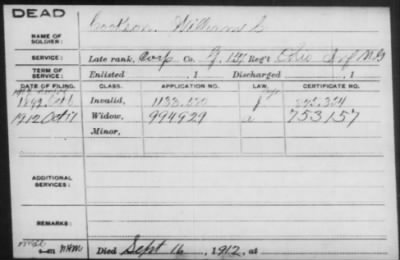 DEAD
NAME OF SOLDIER: Cookson, William C
SERVICE: Late rank, Corp Co. G, 157 Reg't Ohio Inf N.G
TERM OF SERVICE: Enlisted , 1 Discharged , 1
DATE OF FILING. CLASS. APPLICATION NO. LAW. CERTIFICATE NO.
Invalid,
1912 Oct 17 Widow, 994929 753157
Minor,
ADDITIONAL SERVICES:
REMARKS:
Died Sept 16, 1912, at